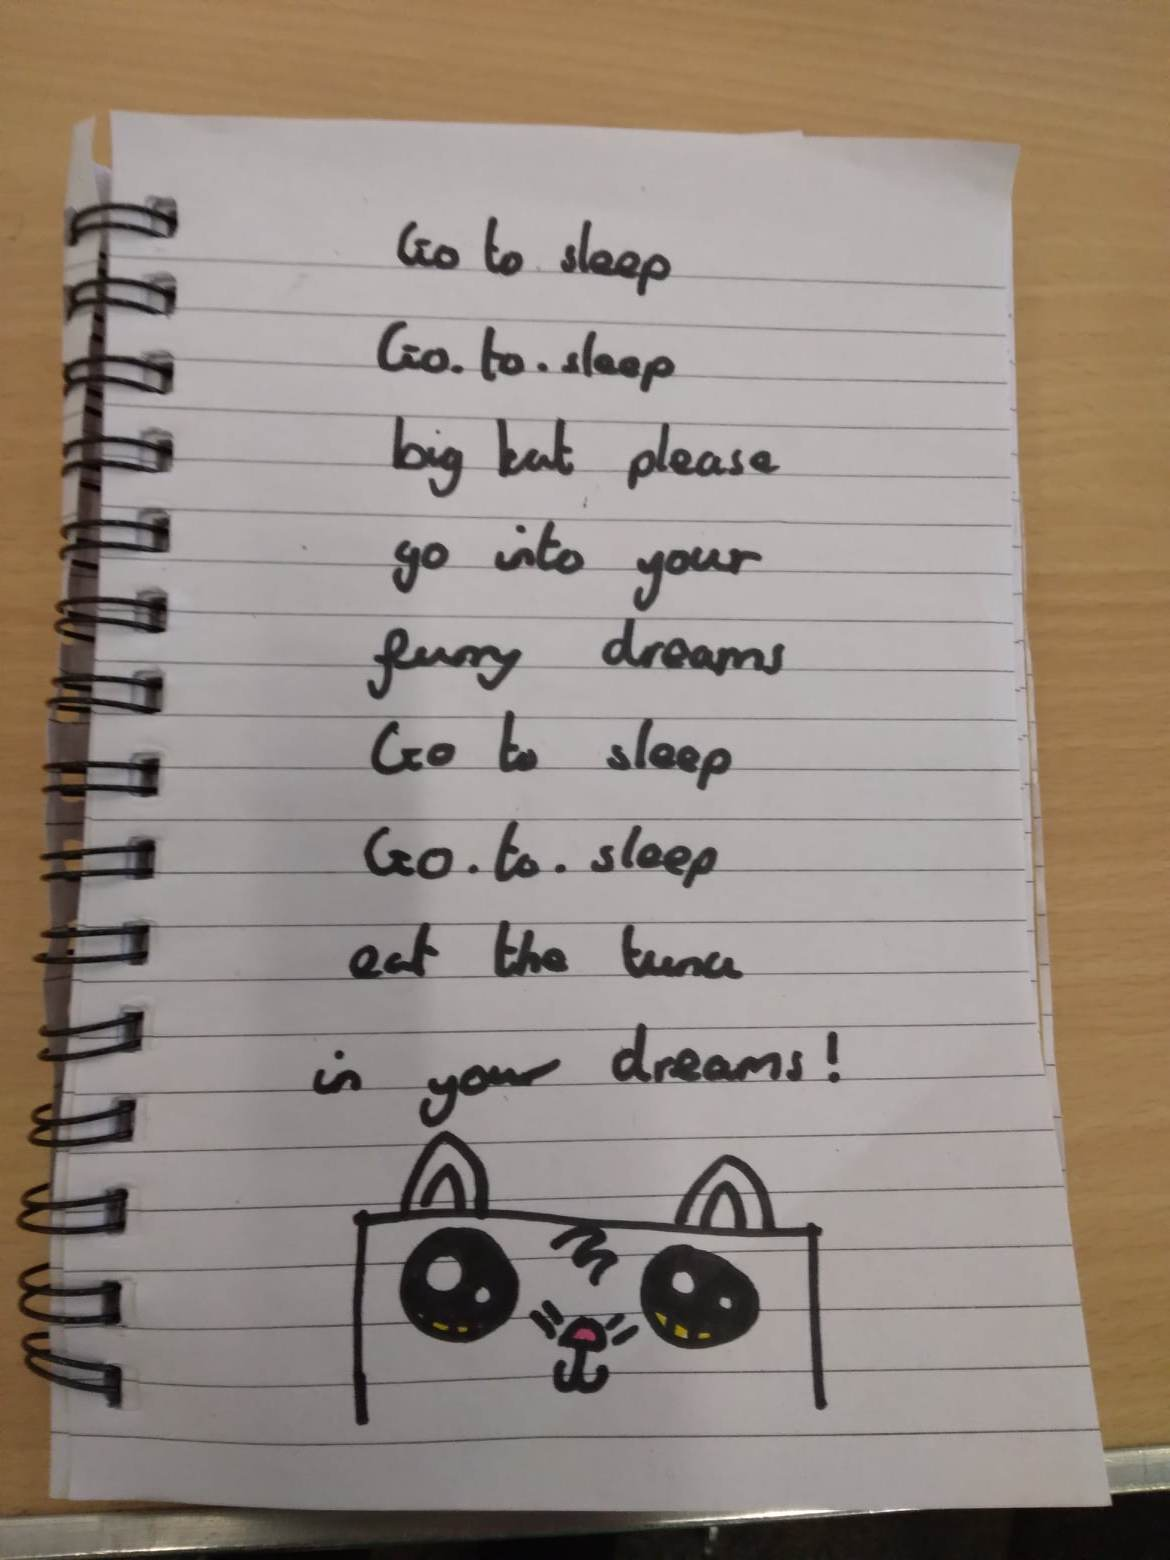 Go to sleep
Go.to.sleep
big kat please
go into your
furry dreams
Go to sleep
Go.to.sleep
eat the tuna
in your dreams!